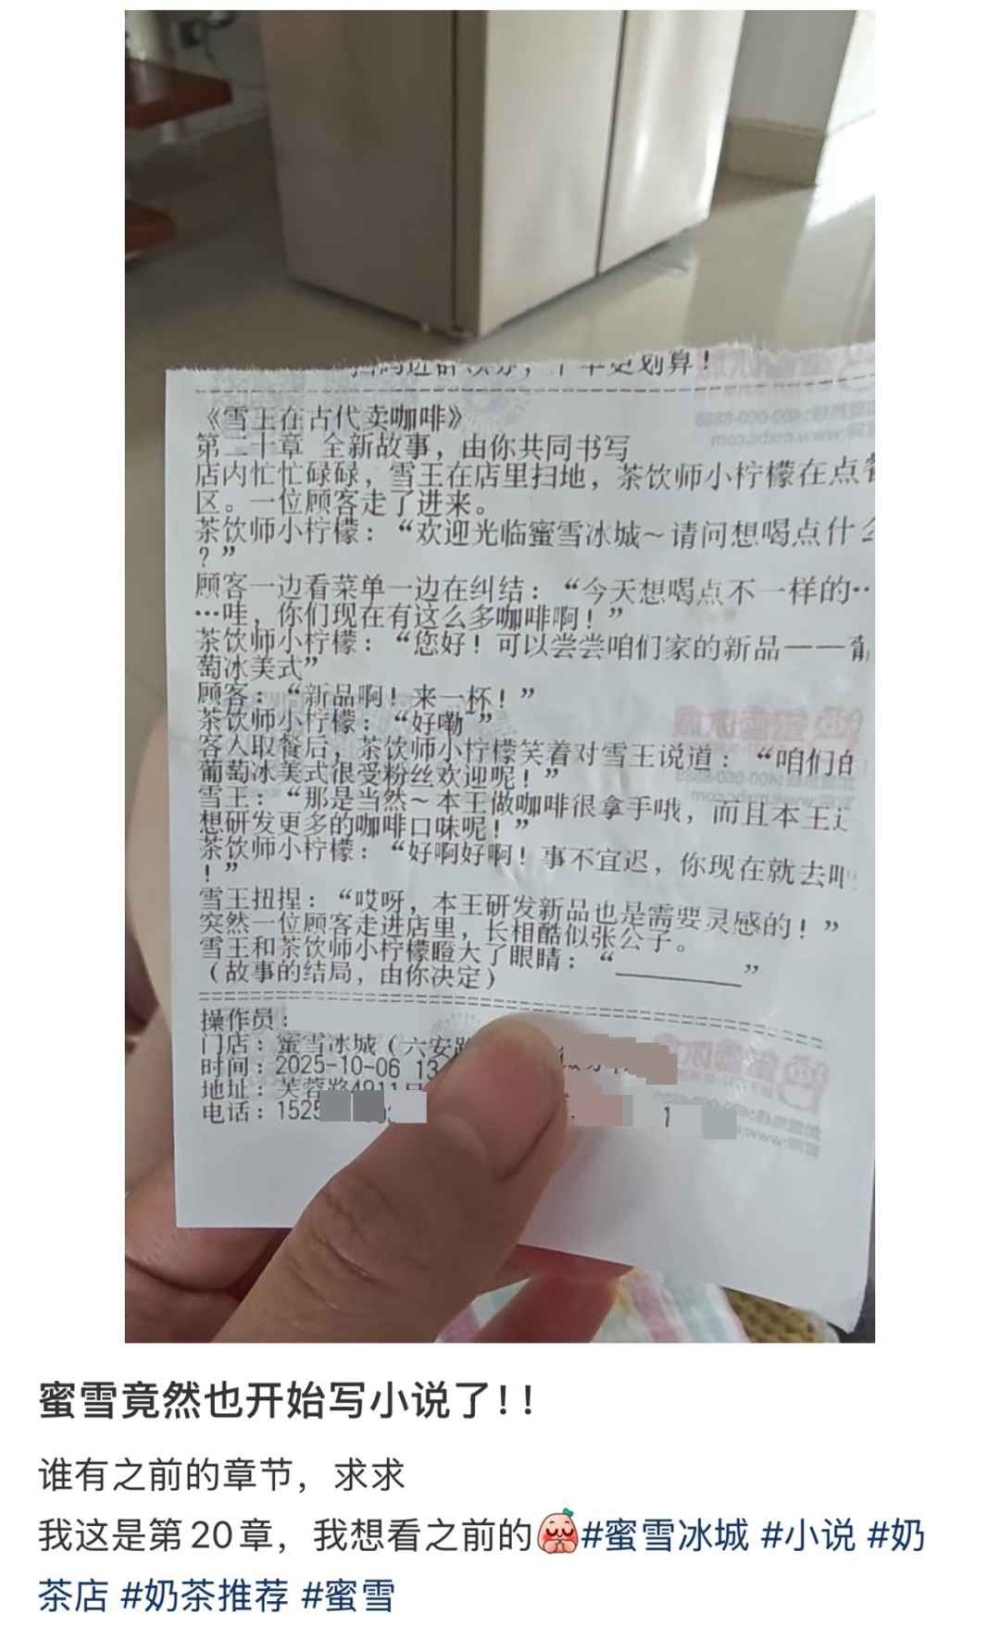 更划算！
《雪王在古代卖咖啡》
第二十章 全新故事，由你共同书写
店内忙忙碌碌，雪王在店里扫地，茶饮师小柠檬在点餐
区。一位顾客走了进来。
茶饮师小柠檬：“欢迎光临蜜雪冰城～请问想喝点什么
？”
顾客一边看菜单一边在纠结：“今天想喝点不一样的…
…哇，你们现在有这么多咖啡啊！”
茶饮师小柠檬：“您好！可以尝尝咱们家的新品——葡
萄冰美式”
顾客：“新品啊！来一杯！”
茶饮师小柠檬：“好嘞”
客人取餐后，茶饮师小柠檬笑着对雪王说道：“咱们的
葡萄冰美式很受粉丝欢迎呢！”
雪王：“那是当然～本王做咖啡很拿手哦，而且本王还
想研发更多的咖啡口味呢！”
茶饮师小柠檬：“好啊好啊！事不宜迟，你现在就去吧
！”
雪王扭捏：“哎呀，本王研发新品也是需要灵感的！”
突然一位顾客走进店里，长相酷似张公子。
雪王和茶饮师小柠檬瞪大了眼睛：“________”
（故事的结局，由你决定）
操作员：
门店：蜜雪冰城（六安路
时间：2025-10-06 13
地址：芙蓉路4911号
电话：1525
蜜雪竟然也开始写小说了！！
谁有之前的章节，求求
我这是第20章，我想看之前的#蜜雪冰城 #小说 #奶
茶店 #奶茶推荐 #蜜雪